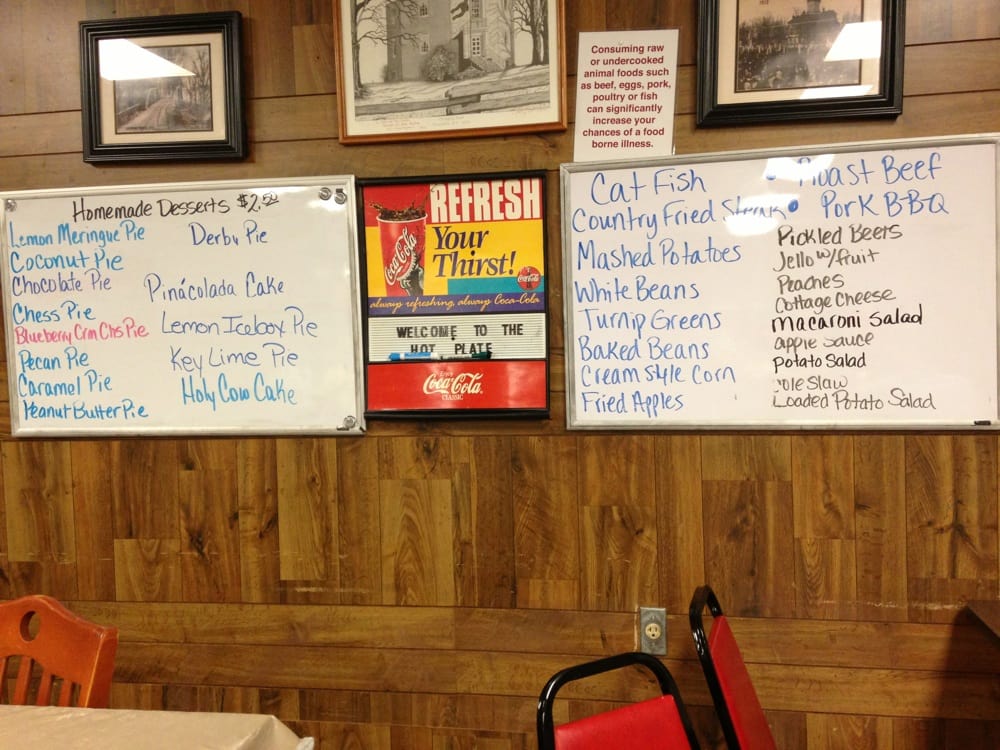 Homemade Desserts $2.50
Lemon Meringue Pie
Coconut Pie
Chocolate Pie
Chess Pie
Blueberry Crm Chs Pie
Pecan Pie
Caramel Pie
Peanut Butter Pie
Derby Pie
Pinácolada Cake
Lemon Icebox Pie
Key Lime Pie
Holy Cow Cake
REFRESH
Your
Thirst!
Coca-Cola
Coca-Cola
always refreshing, always Coca-Cola
WELCOME TO THE
HOT PLATE
Enjoy
Coca-Cola
CLASSIC
Consuming raw
or undercooked
animal foods such
as beef, eggs, pork,
poultry or fish
can significantly
increase your
chances of a food
borne illness.
Cat Fish
Country Fried Steak
Mashed Potatoes
White Beans
Turnip Greens
Baked Beans
Cream Style Corn
Fried Apples
Roast Beef
Pork B-B-Q
Pickled Beets
Jello w/fruit
Peaches
Cottage Cheese
Macaroni Salad
apple sauce
Potato Salad
Cole Slaw
Loaded Potato Salad